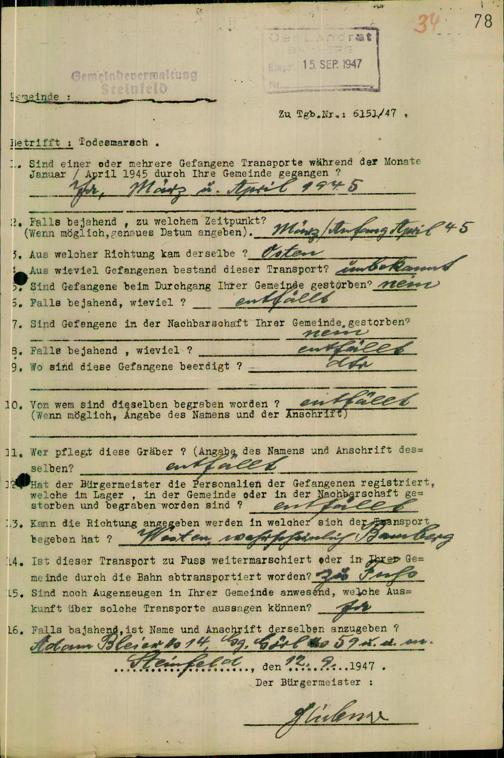 34 78
Der Landrat
15. SEP. 1947
Gemeindeverwaltung
Steinfeld
Gemeinde :
Zu Tgb.Nr.: 6151/47 .
Betrifft : Todesmarsch .
1. Sind einer oder mehrere Gefangene Transporte während der Monate
Januar / April 1945 durch Ihre Gemeinde gegangen ?
Ja, März u. April 1945
2. Falls bejahend , zu welchem Zeitpunkt?
(Wenn möglich,genaues Datum angeben). März/Anfang April 45
3. Aus welcher Richtung kam derselbe ? Osten
4. Aus wieviel Gefangenen bestand dieser Transport? unbekannt
5. Sind Gefangene beim Durchgang Ihrer Gemeinde gestorben? nein
6. Falls bejahend, wieviel ? entfällt
7. Sind Gefangene in der Nachbarschaft Ihrer Gemeinde gestorben?
nein
8. Falls bejahend , wieviel ? entfällt
9. Wo sind diese Gefangene beerdigt ? dto
10. Vom wem sind dieselben begraben worden ? entfällt
(Wenn möglich, Angabe des Namens und der Anschrift)
11. Wer pflegt diese Gräber ? (Angabe des Namens und Anschrift des=
selben? entfällt
12. Hat der Bürgermeister die Personalien der Gefangenen registriert,
welche im Lager , in der Gemeinde oder in der Nachbarschaft ge=
storben und begraben worden sind ? entfällt
13. Kann die Richtung angegeben werden in welcher sich der Transport
begeben hat ? Westen, wahrscheinlich Bamberg
14. Ist dieser Transport zu Fuss weitermarschiert oder in Ihrer Ge=
meinde durch die Bahn abtransportiert worden? zu Fuss
15. Sind noch Augenzeugen in Ihrer Gemeinde anwesend, welche Aus=
kunft über solche Transporte aussagen können? ja
16. Falls bajahend,ist Name und Anschrift derselben anzugeben ?
Adam 14, 59 u.a.m.
Steinfeld, den 12. 9. 1947 .
Der Bürgermeister :